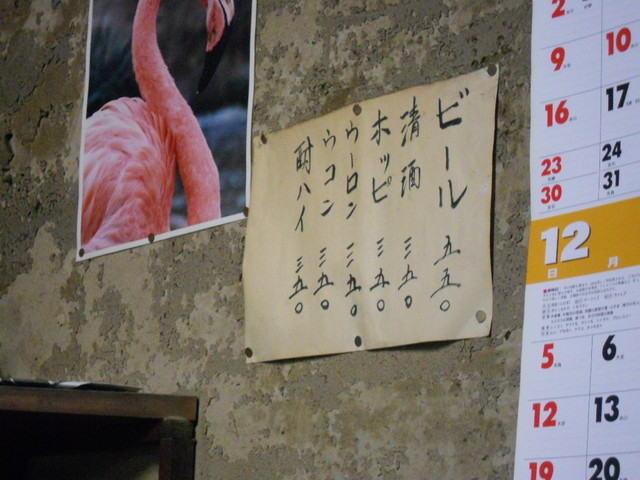 ビール 五五〇
清酒 三五〇
ホッピ 三五〇
ウーロン 三五〇
ウコン 三五〇
酎ハイ 三五〇
2
9 10
16 17
23 24
30 31
12
日 月
5 6
12 13
19 20